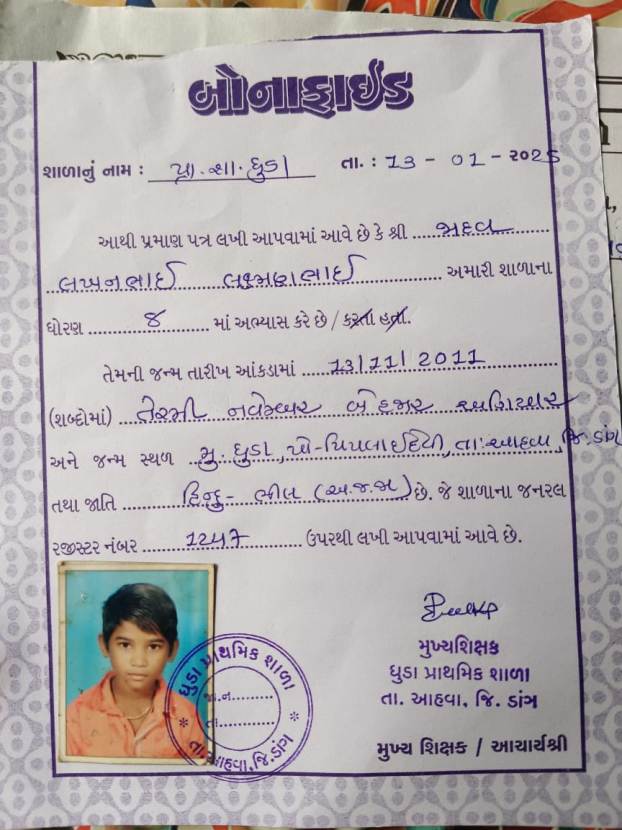 બોનાફાઈડ
શાળાનું નામ : પ્રા. શા. ધુડા તા. : 13 - 01 - 2025
આથી પ્રમાણ પત્ર લખી આપવામાં આવે છે કે શ્રી જાદવ
લખનભાઈ લક્ષ્મણભાઈ અમારી શાળાના
ધોરણ 8 માં અભ્યાસ કરે છે / કરતા હતા.
તેમની જન્મ તારીખ આંકડામાં 13/11/2011
(શબ્દોમાં) તેરમી નવેમ્બર બે હજાર અગિયાર
અને જન્મ સ્થળ મુ. ધુડા, પો-પિપલાઈદેવી, તા: આહવા, જિ. ડાંગ
તથા જાતિ હિન્દુ - ભીલ (અ.જ.જા) છે. જે શાળાના જનરલ
રજીસ્ટર નંબર 1247 ઉપરથી લખી આપવામાં આવે છે.
ધુડા પ્રાથમિક શાળા
જા.ન.
તા.
તા. આહવા, જિ. ડાંગ
મુખ્યશિક્ષક
ધુડા પ્રાથમિક શાળા
તા. આહવા, જિ. ડાંગ
મુખ્ય શિક્ષક / આચાર્યશ્રી